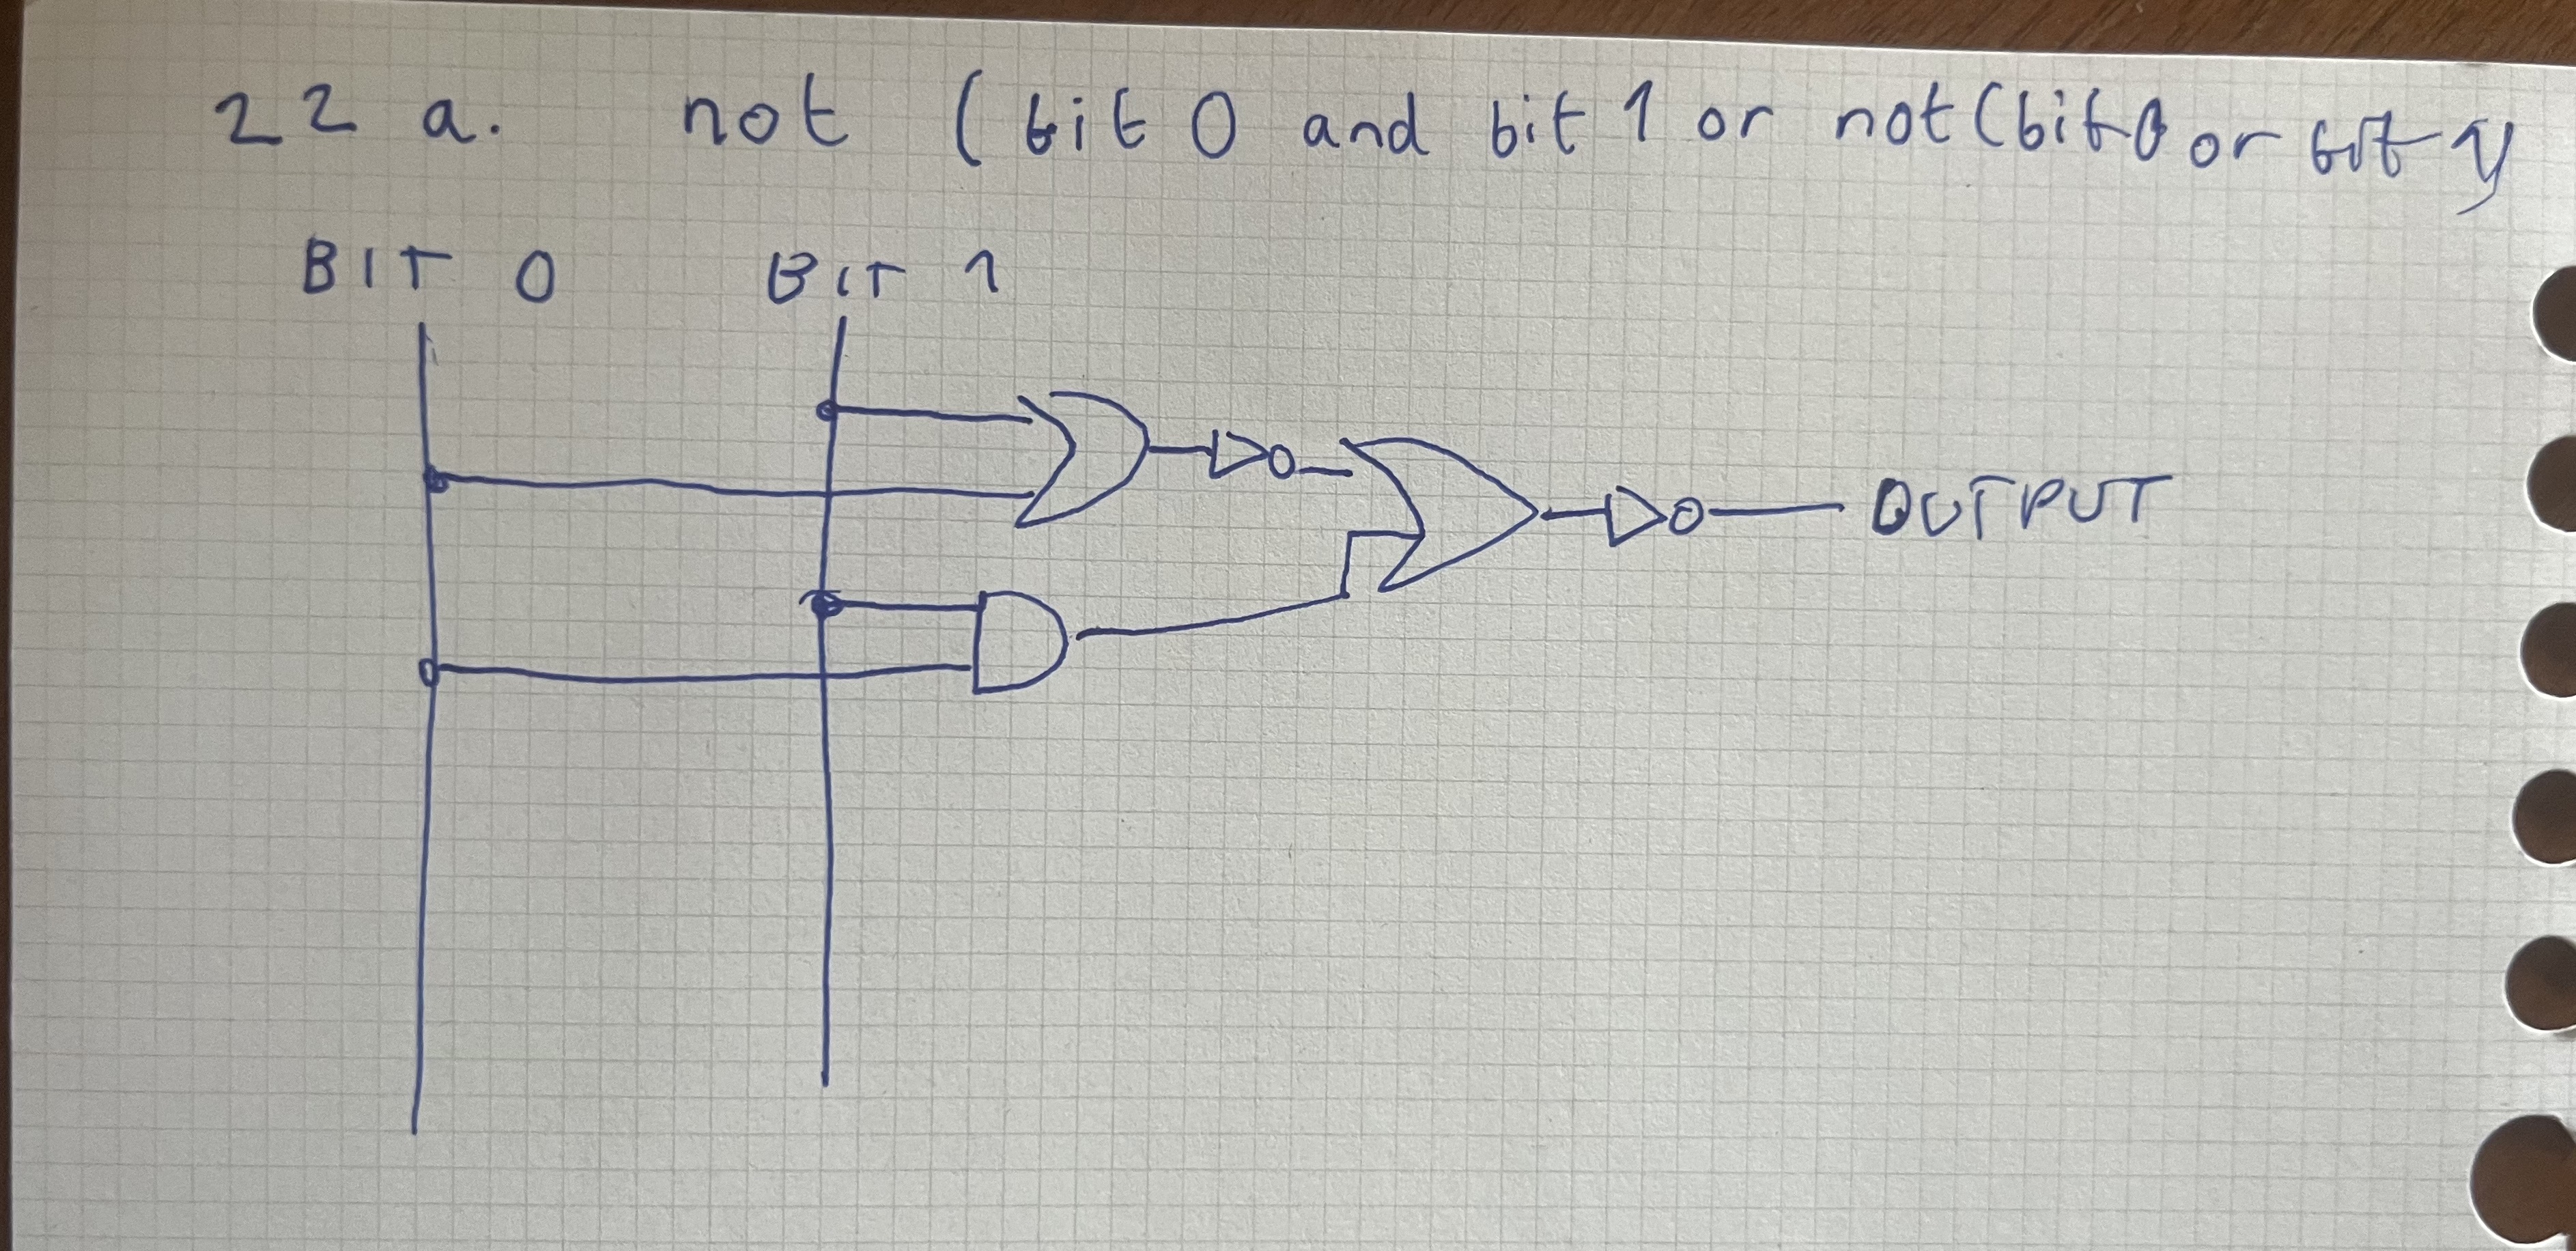 22 a. not (bit 0 and bit 1 or not (bit 0 or bit 1)
BIT 0 BIT 1
OUTPUT